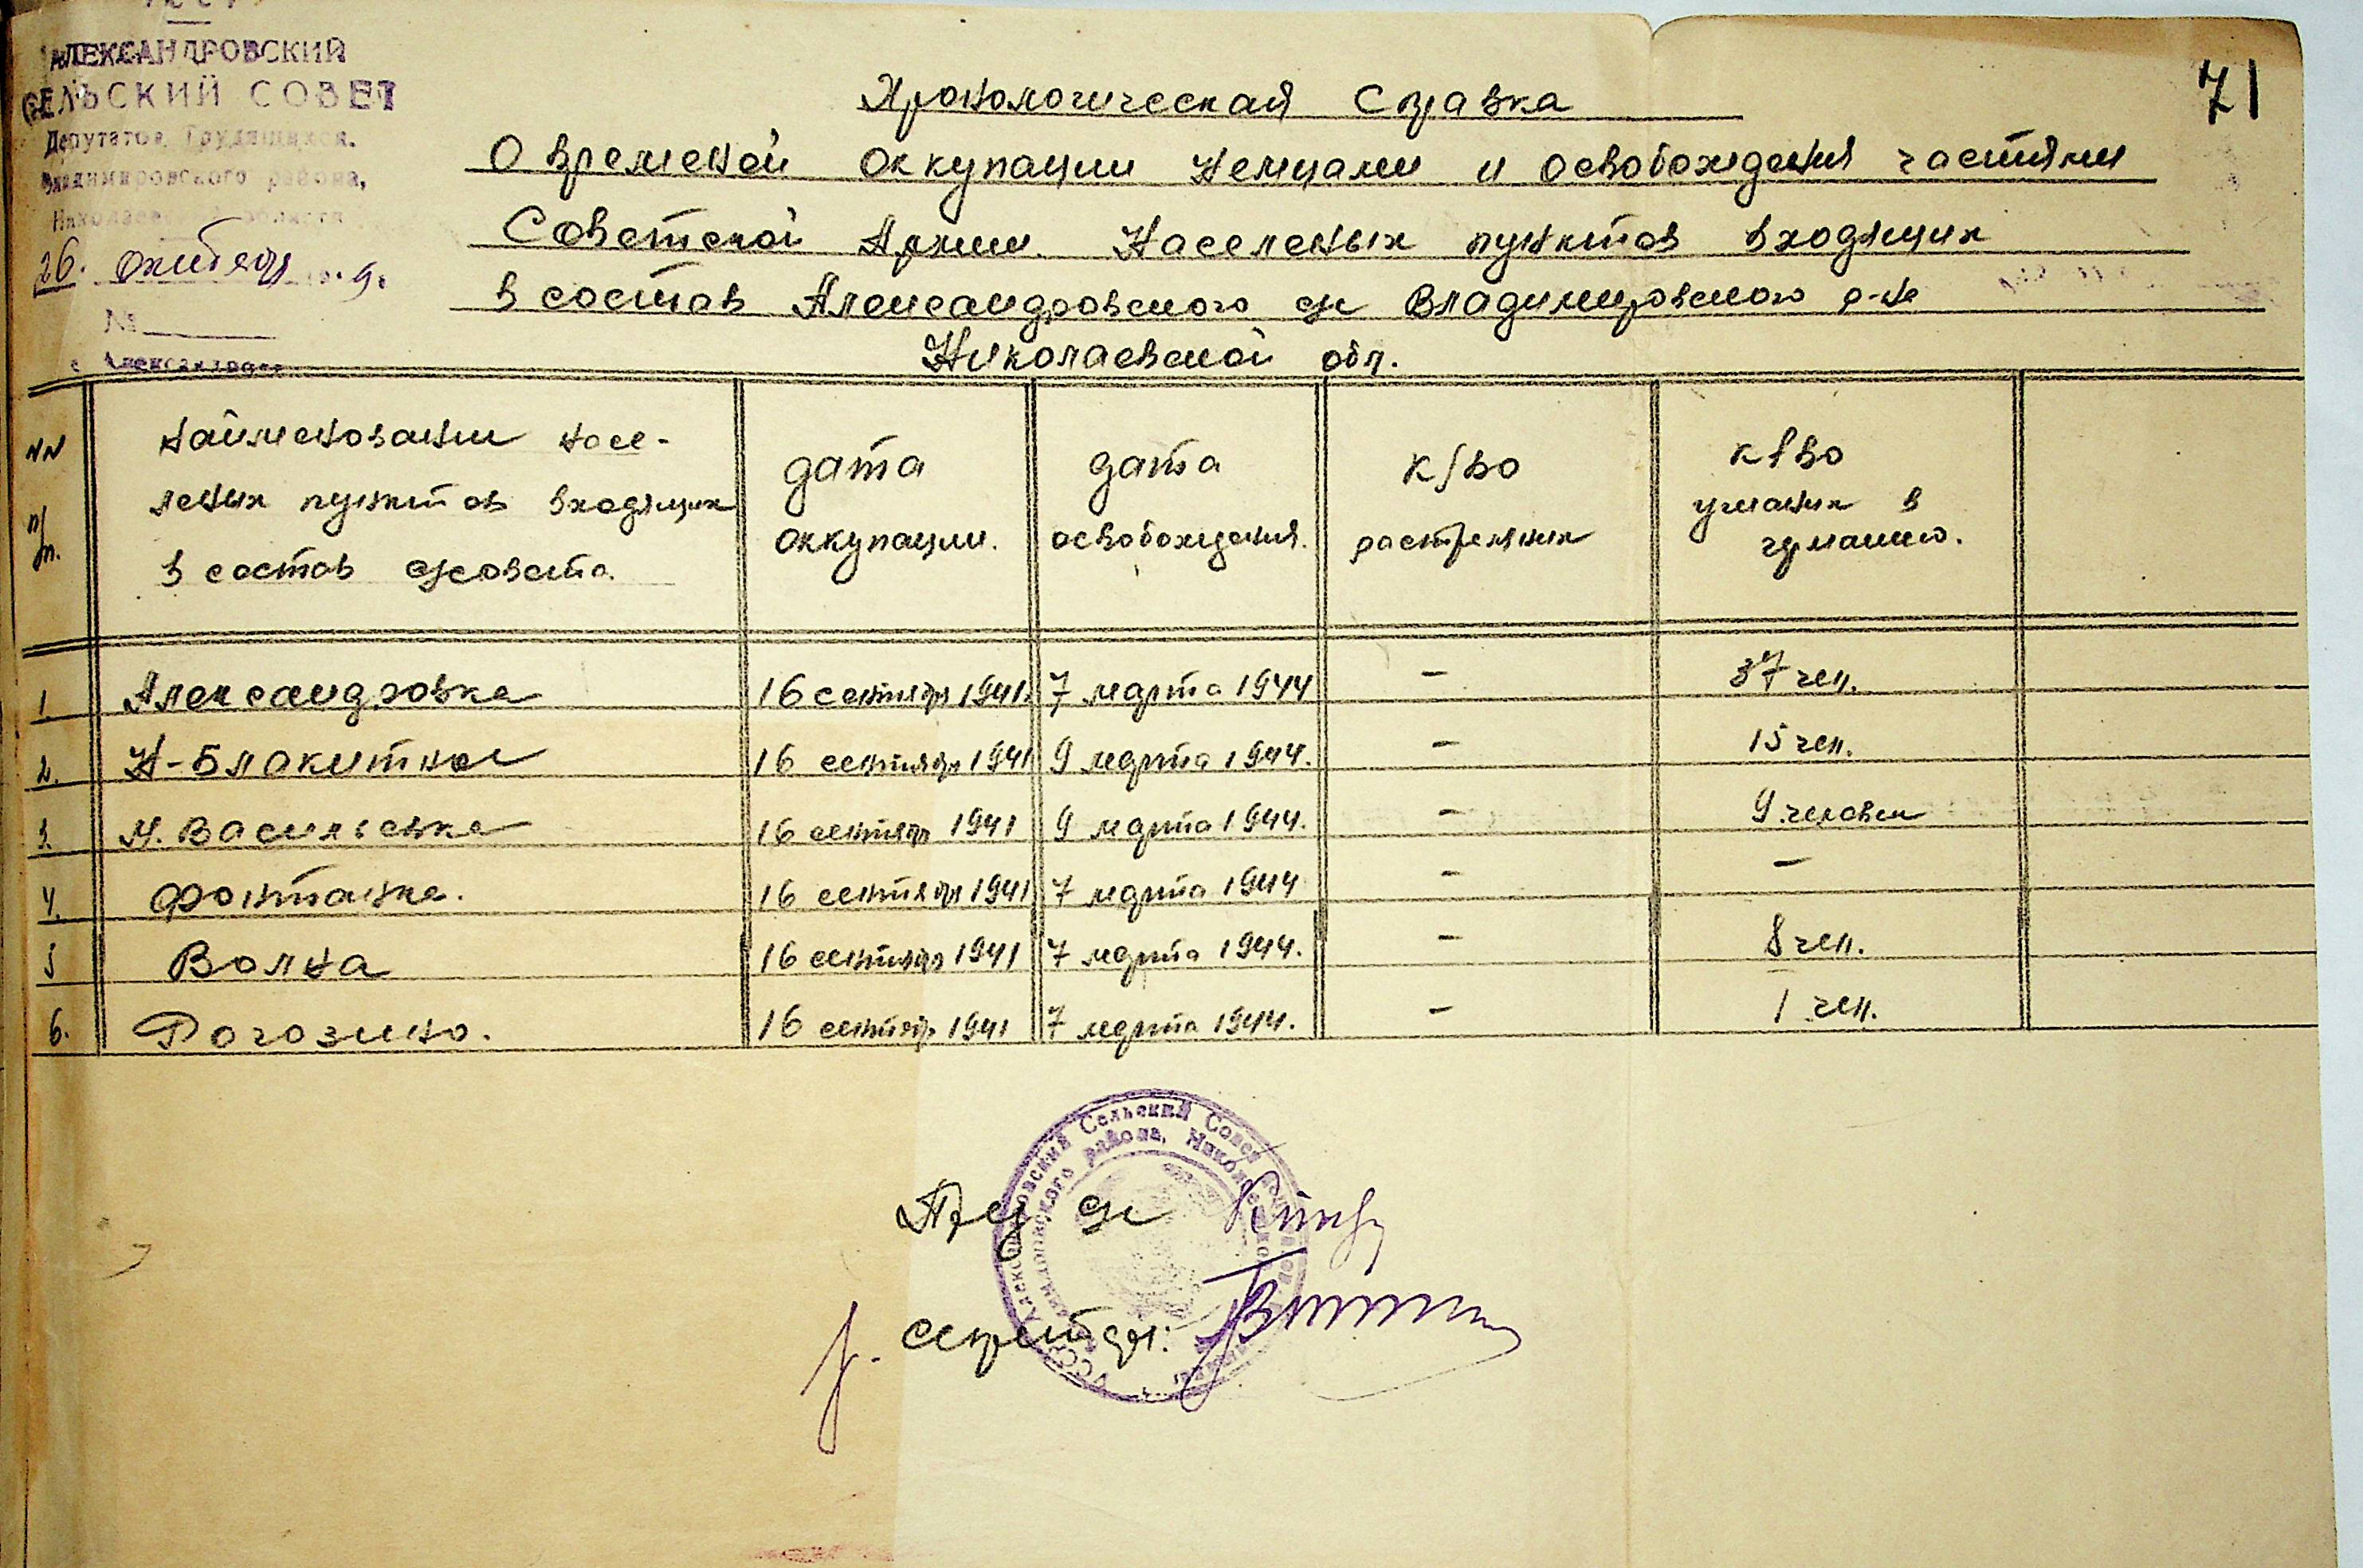 АЛЕКСАНДРОВСКИЙ
СЕЛЬСКИЙ СОВЕТ
Депутатов Трудящихся.
Владимировского района,
26. октября
№
71
Хронологическая Справка
О временой Оккупации Немцами и освобождения частями
Советской Армии. Населеных пунктов входящих
в состав Александровского с/с Владимировского р-на
Николаевской обл.
NN п/п.
найменовании насе-
леных пунктов входящих
в состав с/совета.
дата
оккупации.
дата
освобождения.
к/во
растреляных
к/во
угнаных в
германию.
1. Александровка 16 сентября 1941. 7 марта 1944 - 37 чел.
2. Н-Блакитное 16 сентября 1941 9 марта 1944. - 15 чел.
3. М. Васильевка 16 сентября 1941 9 марта 1944. - 9 человек
4. Фонтанка. 16 сентября 1941 7 марта 1944 - -
5 Волна 16 сентября 1941 7 марта 1944. - 8 чел.
6. Рогозино. 16 сентября 1941 7 марта 1944. - 1 чел.
Пред с/с
секретарь:
Александровский Сельский Совет
района, Николаевской
УССР